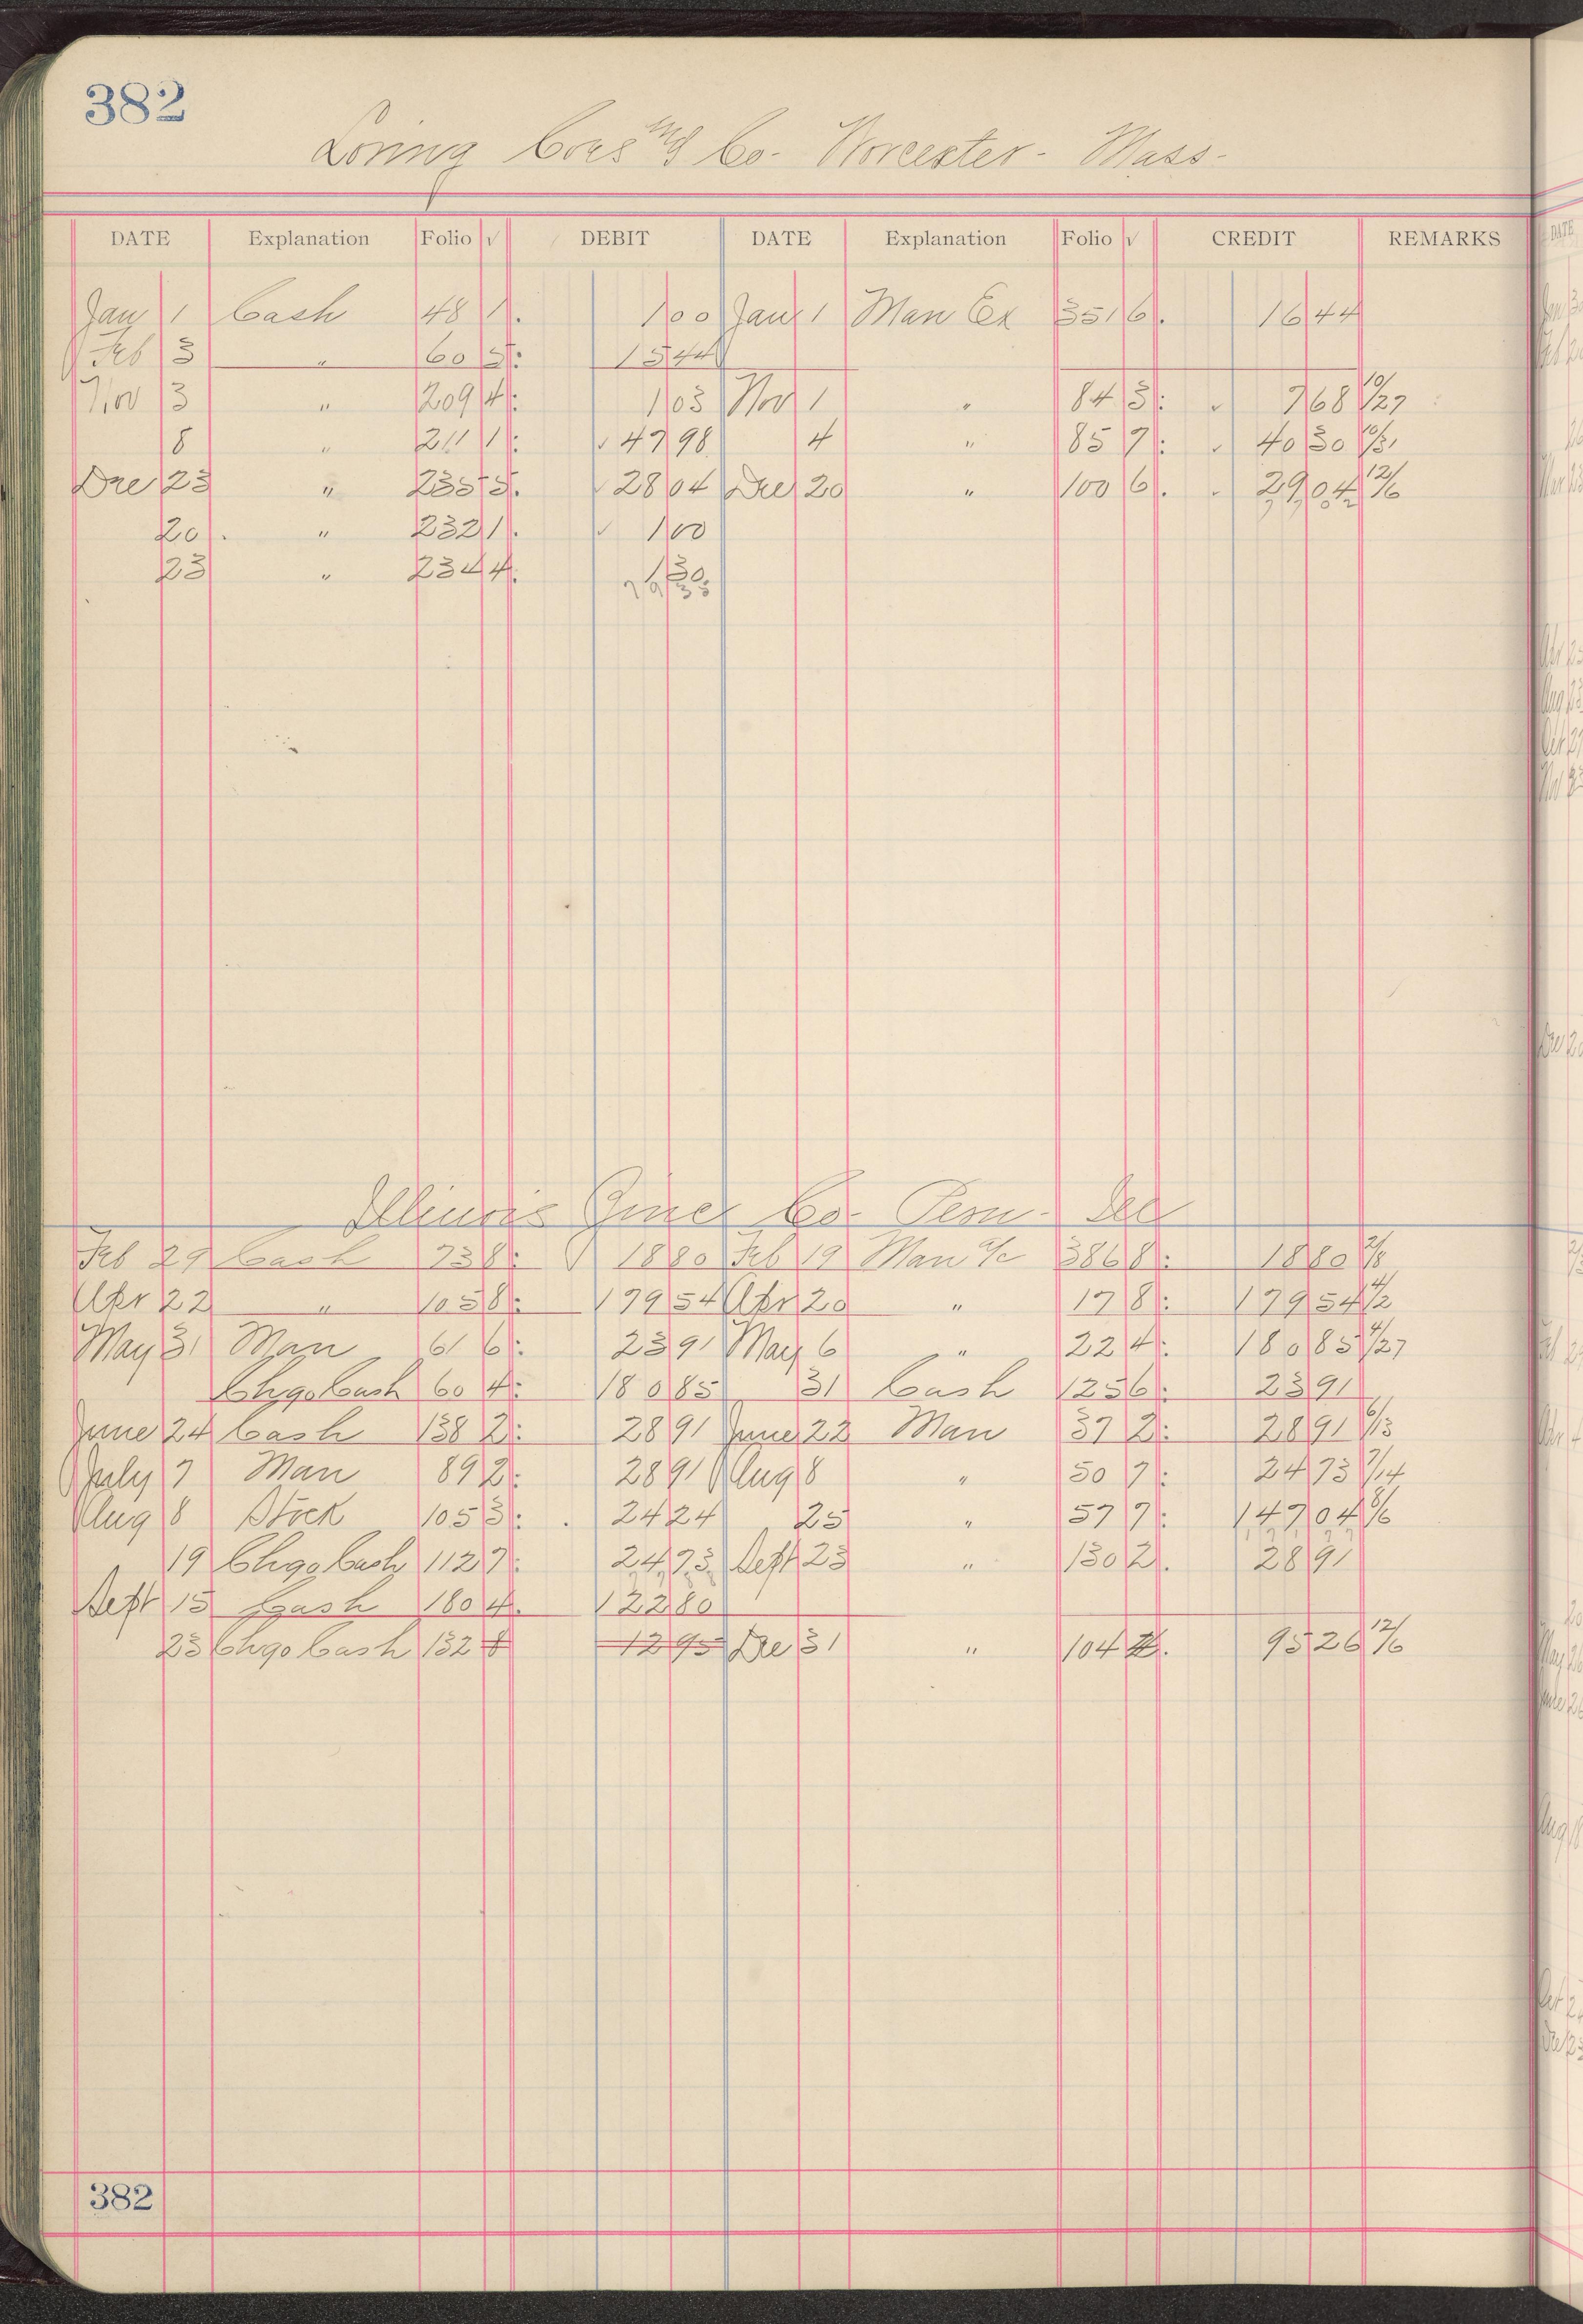 382
Loring Coes Mfg Co- Worcester- Mass-
DATE Explanation Folio √ DEBIT DATE Explanation Folio √ CREDIT REMARKS
Jan 1 Cash 48 1. 1 00 Jan 1 Man Ex 351 6. 16 44
Feb 3 " 60 5: 15 44
Nov 3 " 209 4: 1 03 Nov 1 " 84 3: √ 7 68 10/27
8 " 211 1: √ 47 98 4 " 85 7: √ 40 30 10/31
Dec 23 " 235 5. √ 28 04 Dec 20 " 100 6. √ 29 04 12/6
20. " 232 1. √ 1 00
23 " 234 4. 1 30
79 33
Illinois Zinc Co- Peru- Ill
Feb 29 Cash 73 8: 18 80 Feb 19 Man a/c 386 8: 18 80 2/8
Apr 22 " 105 8: 179 54 Apr 20 " 17 8: 179 54 4/2
May 31 Man 61 6: 23 91 May 6 " 22 4: 180 85 4/27
Chgo Cash 60 4: 180 85 31 Cash 125 6: 23 91
June 24 Cash 138 2: 28 91 June 22 Man 37 2: 28 91 6/13
July 7 Man 89 2: 28 91 Aug 8 " 50 7: 24 73 7/14
Aug 8 Stock 105 3: 24 24 25 " 57 7: 147 04 8/6
19 Chgo Cash 112 7: 24 73 Sept 23 " 130 2. 28 91
Sept 15 Cash 180 4. 122 80
23 Chgo Cash 132 8 12 95 Dec 31 " 104 . 95 26 12/6
382